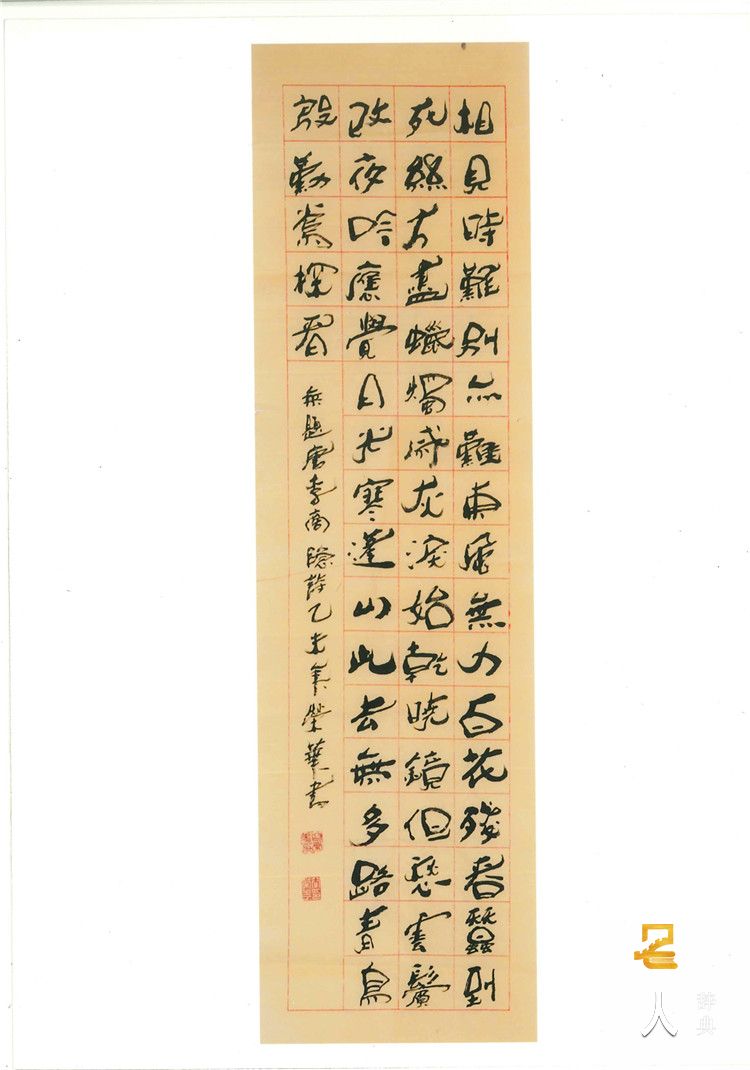 相見時難別亦難東風無力百花殘春蠶到
死絲方盡蠟燭成灰淚始乾曉鏡但愁雲鬢
改夜吟應覺月光寒蓬山此去無多路青鳥
殷勤為探看
無題唐李商隱詩乙未年榮華書
名人
辞典